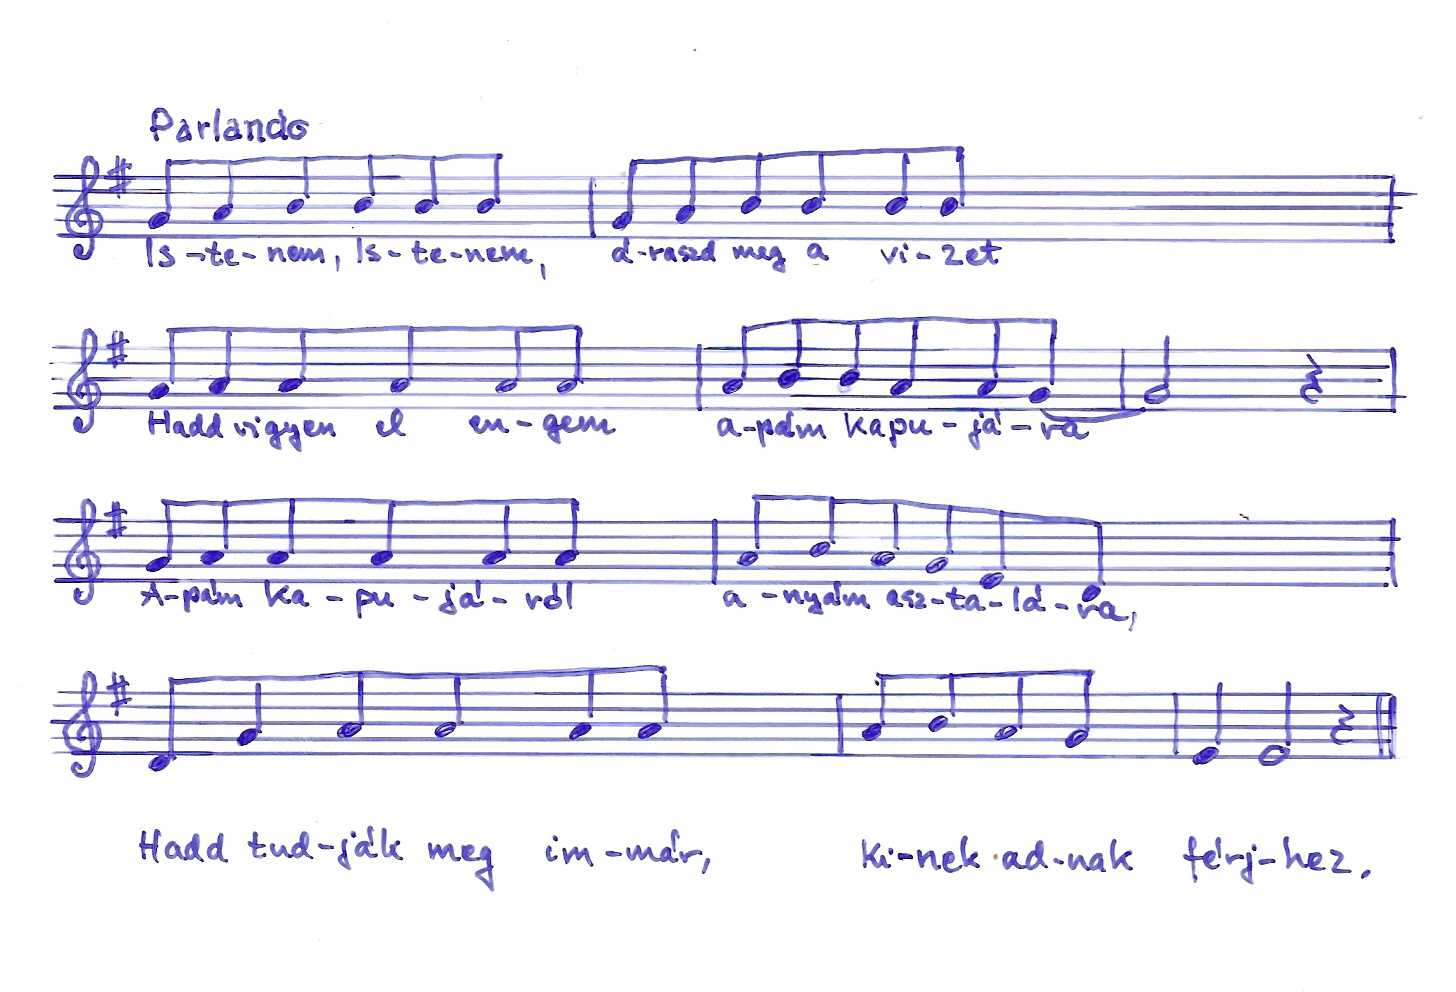 Parlando
Is-te-nem, Is-te-nem, á-raszd meg a vi-zet
Hadd vigyen el en-gem a-pám kapu-já-ra
A-pám ka-pu-já-ról a-nyám asz-ta-lá-ra,
Hadd tud-ják meg im-már, Ki-nek ad-nak férj-hez.